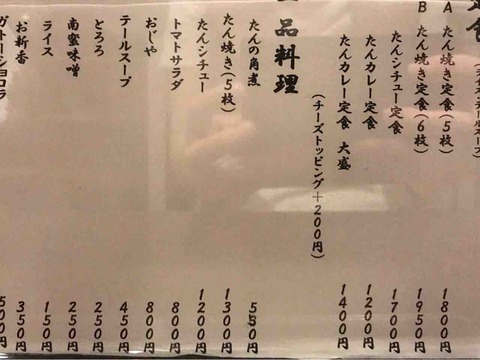 定食
A たん焼き定食(5枚) 1800円
B たん焼き定食(6枚) 1950円
たんシチュー定食 1700円
たんカレー定食 1200円
たんカレー定食 大盛 1400円
(チーズトッピング+200円)
一品料理
たんの角煮 550円
たん焼き(5枚) 1300円
たんシチュー 1200円
トマトサラダ 800円
おじや 800円
テールスープ 450円
とろろ 250円
南蛮味噌 250円
ライス 150円
お新香 350円
ガトーショコラ 500円